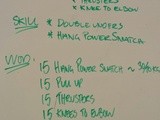 THRUSTERS
* KNEES TO ELBOW
SKILL
* DOUBLE UNDERS
* HANG POWER SNATCH
WOD:
15 HANG POWER SNATCH ~
15 PULL UP
15 THRUSTERS
15 KNEES TO ELBOW